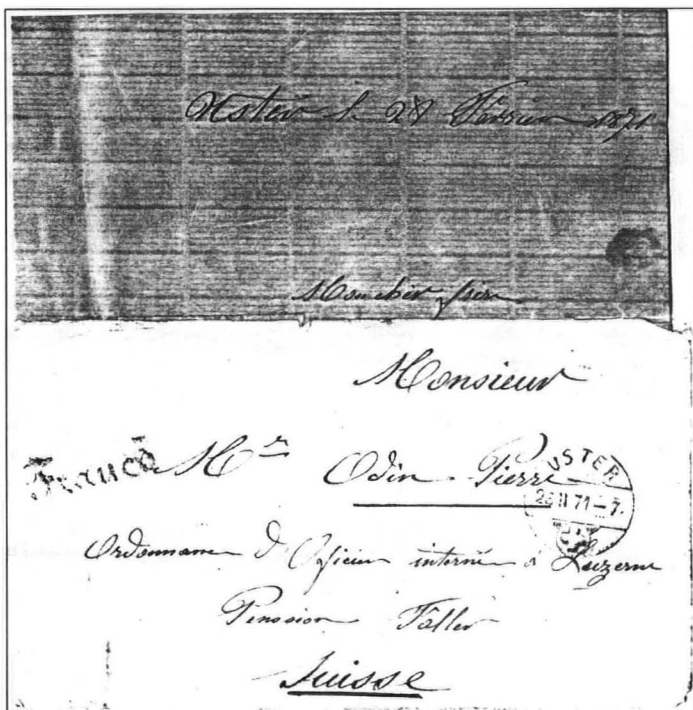 Uster le 28 Février 1871
Mon cher frère
Monsieur
Franco
Mr Odin Pierre
USTER
28 II 71-7.
Ordonnance d'Officier interné à Luzerne
Pension Faller
Suisse